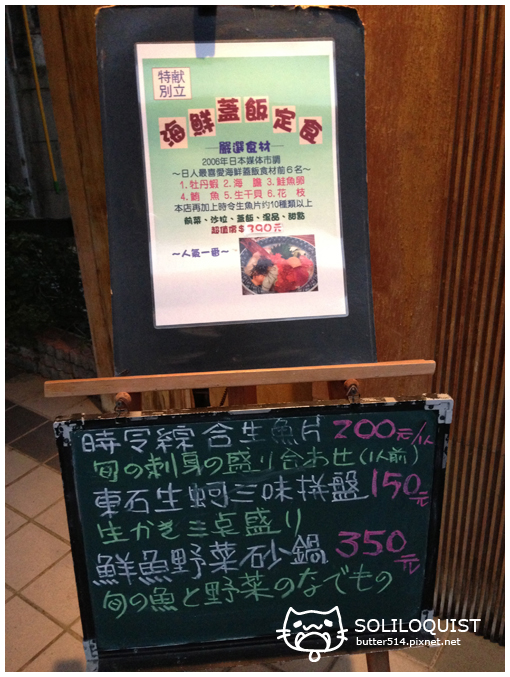 特献
別立
海鮮蓋飯定食
嚴選食材
2006年日本媒体市調
～日人最喜愛海鮮蓋飯食材前6名～
1.牡丹蝦 2.海膽 3.鮭魚卵
4.鮪魚 5.生干貝 6.花枝
本店再加上時令生魚片約10種類以上
前菜、沙拉、蓋飯、湯品、甜點
超值價$390元
～人氣一番～
時令綜合生魚片 200元/1人
旬の刺身の盛り合わせ(1人前)
東石生蚵三味拼盤 150元
生かき三点盛り
鮮魚野菜砂鍋 350元
旬の魚と野菜のなでもの
SOLILOQUIST
butter514.pixnet.net